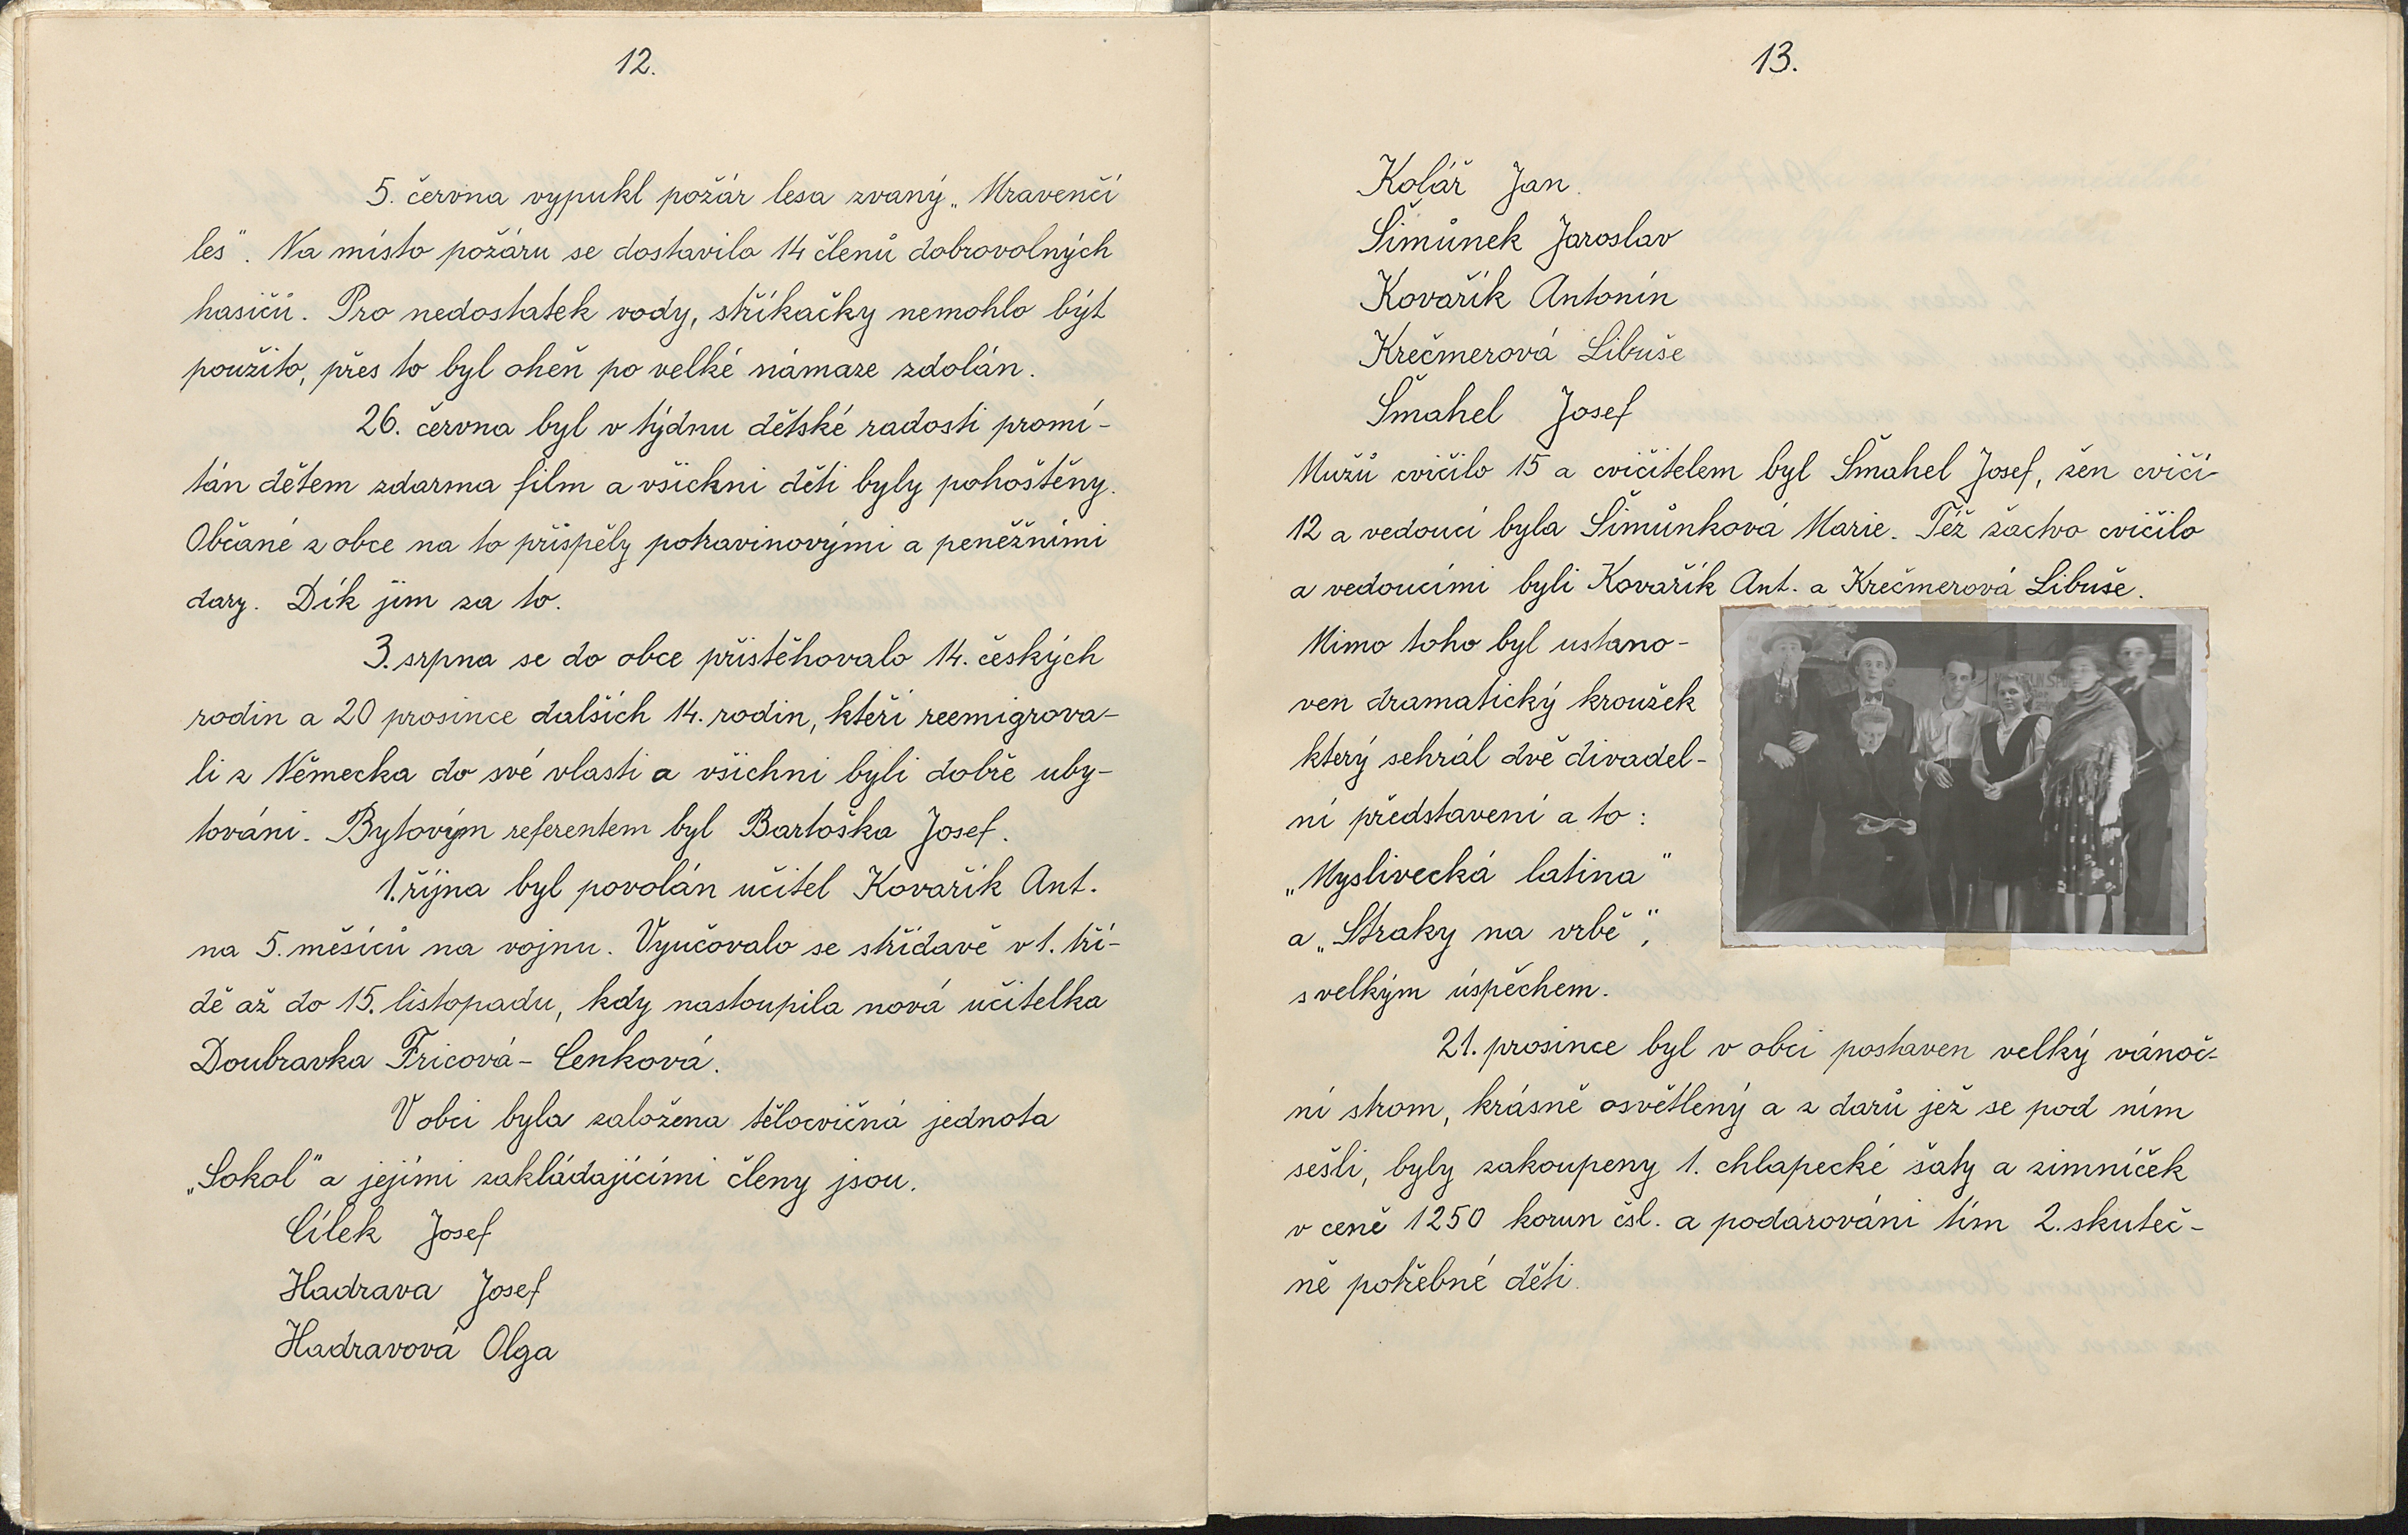 12.
5. června vypukl požár lesa zvaný „Mravenčí
les". Na místo požáru se dostavilo 14 členů dobrovolných
hasičů. Pro nedostatek vody, stříkačky nemohlo být
použito, přes to byl oheň po velké námaze zdolán.
26. června byl v týdnu dětské radosti promí-
tán dětem zdarma film a všickni děti byly pohoštěny.
Občané z obce na to přispěly potravinovými a peněžními
dary. Dík jim za to.
3. srpna se do obce přistěhovalo 14. českých
rodin a 20 prosince dalších 14. rodin, kteří reemigrova-
li z Německa do své vlasti a všichni byli dobře uby-
továni. Bytovým referentem byl Bartoška Josef.
1. října byl povolán učitel Kovařík Ant.
na 5. měsíců na vojnu. Vyučovalo se střídavě v 1. tří-
dě až do 15. listopadu, kdy nastoupila nová učitelka
Doubravka Fricová - Cenková.
V obci byla založena tělocvičná jednota
„Sokol" a jejími zakládajícími členy jsou.
Cílek Josef
Hadrava Josef
Hadravová Olga
13.
Kolář Jan.
Šimůnek Jaroslav
Kovařík Antonín
Krečmerová Libuše
Šmahel Josef
Mužů cvičilo 15 a cvičitelem byl Šmahel Josef, žen cvičí-
12 a vedoucí byla Šimůnková Marie. Též žactvo cvičilo
a vedoucími byli Kovařík Ant. a Krečmerová Libuše.
Mimo toho byl ustano-
ven dramatický kroužek
který sehrál dvě divadel-
ní představení a to:
„Myslivecká latina"
a „Straky na vrbě",
s velkým úspěchem.
21. prosince byl v obci postaven velký vánoč-
ní strom, krásně osvětlený a z darů jež se pod ním
sešli, byly zakoupeny 1. chlapecké šaty a zimníček
v ceně 1250 korun čsl. a podarováni tím 2. skuteč-
ně potřebné děti.